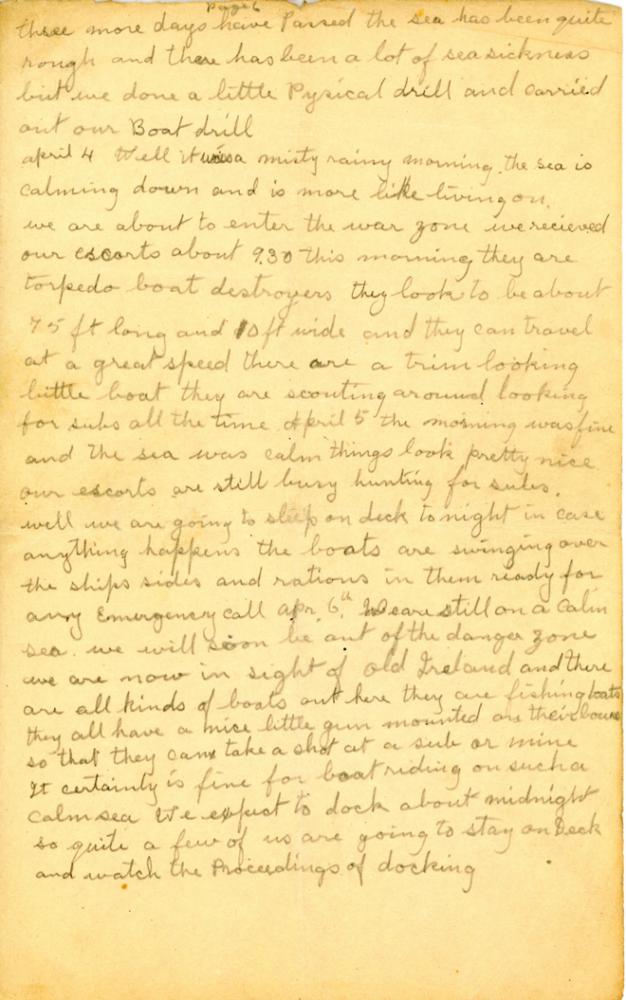 Page 6
three more days have Passed the sea has been quite
rough and there has been a lot of sea sickness
but we done a little Pysical drill and carried
out our Boat drill
april 4 Well it was a misty rainy morning. the sea is
calming down and is more like living on.
we are about to enter the war zone we recieved
our escorts about 9.30 this morning they are
torpedo boat destroyers they look to be about
75 ft long and 10 ft wide and they can travel
at a great speed there are a trim looking
little boat they are scouting around looking
for subs all the time. April 5 the morning was fine
and the sea was calm things look pretty nice
our escorts are still busy hunting for subs.
well we are going to sleep on deck to night in case
anything happens the boats are swinging over
the ships sides and rations in them ready for
any Emergency call Apr. 6th. We are still on a calm
sea. we will soon be out of the danger zone
we are now in sight of old Ireland and there
are all kinds of boats out here they are fishing boats
they all have a nice little gun mounted on their bows
so that they can take a shot at a sub or mine
It certainly is fine for boat riding on such a
calm sea We expect to dock about midnight
so quite a few of us are going to stay on Deck
and watch the Proceedings of docking